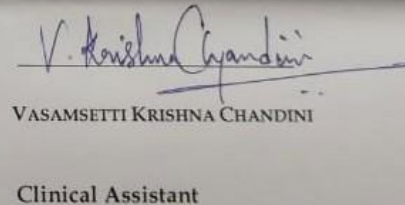 V. Krishna Chandini
VASAMSETTI KRISHNA CHANDINI
Clinical Assistant